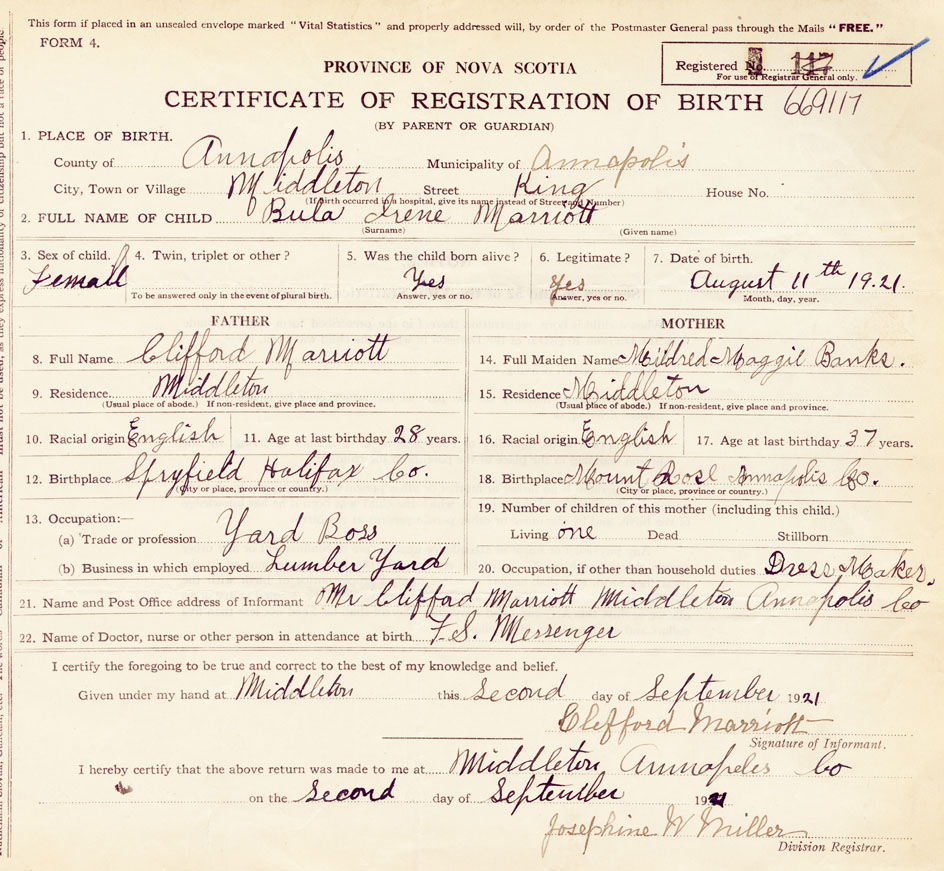 This form if placed in an unsealed envelope marked "Vital Statistics" and properly addressed will, by order of the Postmaster General pass through the Mails "FREE."
FORM 4.
Registered No. 117
For use of Registrar General only.
PROVINCE OF NOVA SCOTIA
CERTIFICATE OF REGISTRATION OF BIRTH 669117
(BY PARENT OR GUARDIAN)
1. PLACE OF BIRTH.
County of Annapolis Municipality of Annapolis
City, Town or Village Middleton Street King House No.
(If birth occurred in a hospital, give its name instead of Street and Number)
2. FULL NAME OF CHILD Bula Irene Marriott
(Surname) (Given name)
3. Sex of child. Female 4. Twin, triplet or other? To be answered only in the event of plural birth.
5. Was the child born alive? Yes Answer, yes or no.
6. Legitimate? Yes Answer, yes or no.
7. Date of birth. August 11th 1921. Month, day, year.
FATHER
8. Full Name Clifford Marriott
9. Residence Middleton
(Usual place of abode.) If non-resident, give place and province.
10. Racial origin English 11. Age at last birthday 28 years.
12. Birthplace Spryfield Halifax Co.
(City or place, province or country.)
13. Occupation:—
(a) Trade or profession Yard Boss
(b) Business in which employed Lumber Yard
MOTHER
14. Full Maiden Name Mildred Maggie Banks.
15. Residence Middleton
(Usual place of abode.) If non-resident, give place and province.
16. Racial origin English 17. Age at last birthday 37 years.
18. Birthplace Mount Rose Annapolis Co.
(City or place, province or country.)
19. Number of children of this mother (including this child.)
Living one Dead Stillborn
20. Occupation, if other than household duties Dress Maker.
21. Name and Post Office address of Informant Mr Clifford Marriott Middleton Annapolis Co
22. Name of Doctor, nurse or other person in attendance at birth F.S. Messenger
I certify the foregoing to be true and correct to the best of my knowledge and belief.
Given under my hand at Middleton this Second day of September 1921
Clifford Marriott
Signature of Informant.
I hereby certify that the above return was made to me at Middleton Annapoles Co
on the Second day of September 1921
Josephine W Miller
Division Registrar.